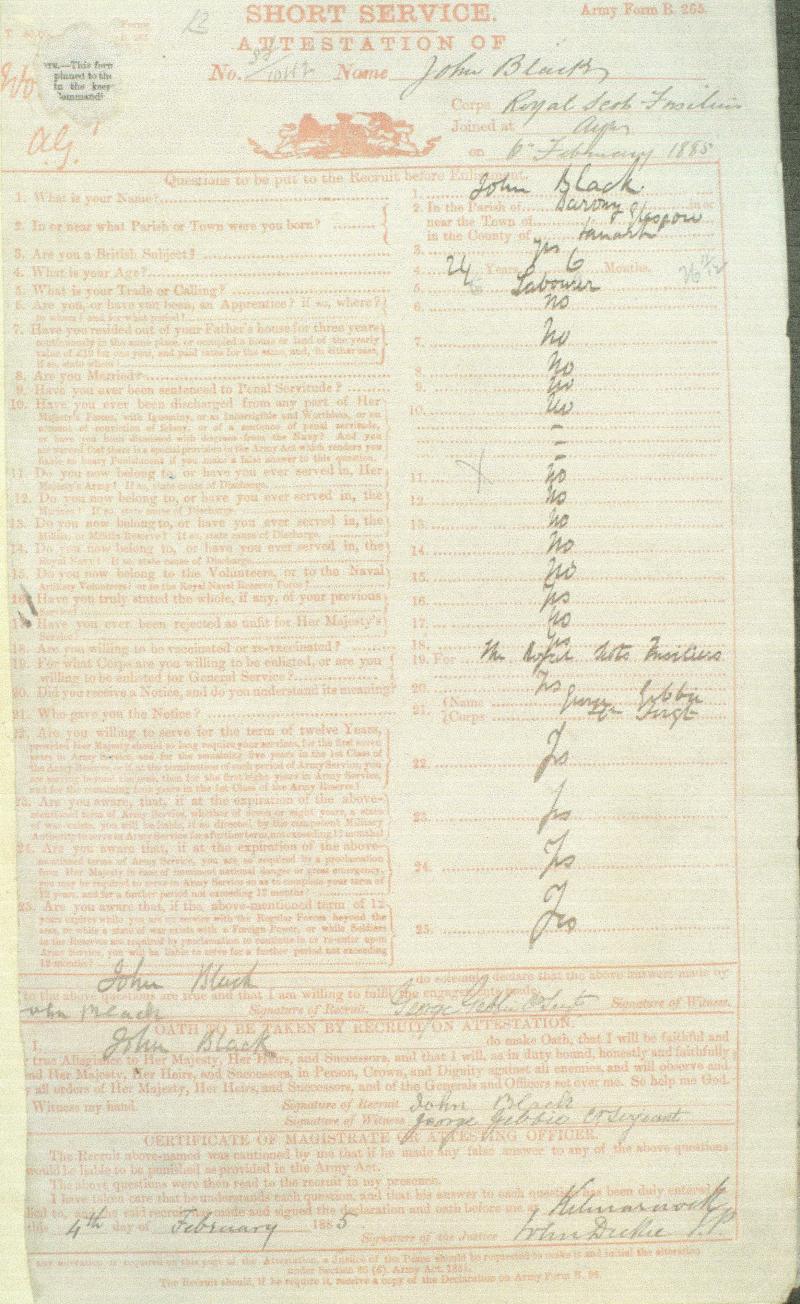 SHORT SERVICE.
Army Form B. 265.
ATTESTATION OF
No. Name John Black
Corps Royal Scots Fusiliers
Joined at Ayr
on 6th February 1885
Questions to be put to the Recruit before Enlistment.
1. What is your Name? 1. John Black
2. In or near what Parish or Town were you born? 2. In the Parish of Barony in or
near the Town of Glasgow
in the County of Lanark
3. Are you a British Subject? 3. Yes
4. What is your Age? 4. 24 Years 6 Months.
5. What is your Trade or Calling? 5. Labourer
6. Are you, or have you been, an Apprentice? if so, where? 6. No
to whom? and for what period?
7. Have you resided out of your Father's house for three years 7. No
continuously in the same place, or occupied a house or land of the yearly
value of £10 for one year, and paid rates for the same, and, in either case,
if so, state where?
8. Are you Married? 8. No
9. Have you ever been sentenced to Penal Servitude? 9. No
10. Have you ever been discharged from any part of Her 10. No
Majesty's Forces, with Ignominy, or as Incorrigible and Worthless, or on
account of conviction of felony, or of a sentence of penal servitude,
or have you been dismissed with disgrace from the Navy? And you
are warned that there is a special provision in the Army Act which renders you
liable to heavy Punishment if you make a false answer to this question.
11. Do you now belong to, or have you ever served in, Her 11. No
Majesty's Army? If so, state cause of Discharge.
12. Do you now belong to, or have you ever served in, the 12. No
Marines? If so, state cause of Discharge.
13. Do you now belong to, or have you ever served in, the 13. No
Militia, or Militia Reserve? If so, state cause of Discharge.
14. Do you now belong to, or have you ever served in, the 14. No
Royal Navy? If so, state cause of Discharge.
15. Do you now belong to the Volunteers, or to the Naval 15. No
Artillery Volunteers, or to the Royal Naval Reserve Force?
16. Have you truly stated the whole, if any, of your previous 16. Yes
Service?
17. Have you ever been rejected as unfit for Her Majesty's 17. No
Service?
18. Are you willing to be vaccinated or re-vaccinated? 18. Yes
19. For what Corps are you willing to be enlisted, or are you 19. For The Royal Scots Fusiliers
willing to be enlisted for General Service?
20. Did you receive a Notice, and do you understand its meaning? 20. Yes
21. Who gave you the Notice? 21. Name George Gebbie
Corps
22. Are you willing to serve for the term of twelve Years, 22. Yes
provided Her Majesty should so long require your services, for the first seven
years in Army Service, and for the remaining five years in the 1st Class of
the Army Reserve
23. Are you aware, that, if at the expiration of the above- 23. Yes
mentioned term of Army Service, whether of seven or eight years, a state
of war exists, you will be liable, if so directed by the competent Military
Authority to serve in Army Service for a further term, not exceeding 12 months?
24. Are you aware that, if at the expiration of the above- 24. Yes
mentioned terms of Army Service, you are so required by a proclamation
from Her Majesty in case of imminent national danger or great emergency,
you may be required to serve in Army Service so as to complete your term of
12 years, and for a further period not exceeding 12 months?
25. Are you aware that, if the above-mentioned term of 12 25. Yes
years expires while you are on service with the Regular Forces beyond the
seas, or while a state of war exists with a Foreign Power, or while Soldiers
in the Reserve are required by proclamation to continue in or re-enter upon
Army Service, you will be liable to serve for a further period not exceeding
12 months?
John Black do solemnly declare that the above answers made by
to the above questions are true and that I am willing to fulfil the engagements made.
John Black Signature of Recruit. George Gebbie Signature of Witness.
OATH TO BE TAKEN BY RECRUIT ON ATTESTATION.
I, John Black do make Oath, that I will be faithful and
true Allegiance to Her Majesty, Her Heirs, and Successors, and that I will, as in duty bound, honestly and faithfully
Her Majesty, Her Heirs, and Successors, in Person, Crown, and Dignity against all enemies, and will observe and
all orders of Her Majesty, Her Heirs, and Successors, and of the Generals and Officers set over me. So help me God.
Witness my hand. Signature of Recruit John Black
Signature of Witness George Gebbie Cr Sergeant
CERTIFICATE OF MAGISTRATE OR ATTESTING OFFICER.
The Recruit above-named was cautioned by me that if he made any false answer to any of the above questions
would be liable to be punished as provided in the Army Act.
The above questions were then read to the recruit in my presence.
I have taken care that he understands each question, and that his answer to each question has been duly entered
and the said recruit has made and signed the declaration and oath before me at Kilmarnock
this 4th day of February 1885.
Signature of the Justice John Dickie J.P.
any alteration is required on this page of the Attestation, a Justice of the Peace should be requested to make it and initial the alteration
under Section 80 (6), Army Act, 1881.
The Recruit should, if he require it, receive a copy of the Declaration on Army Form B.